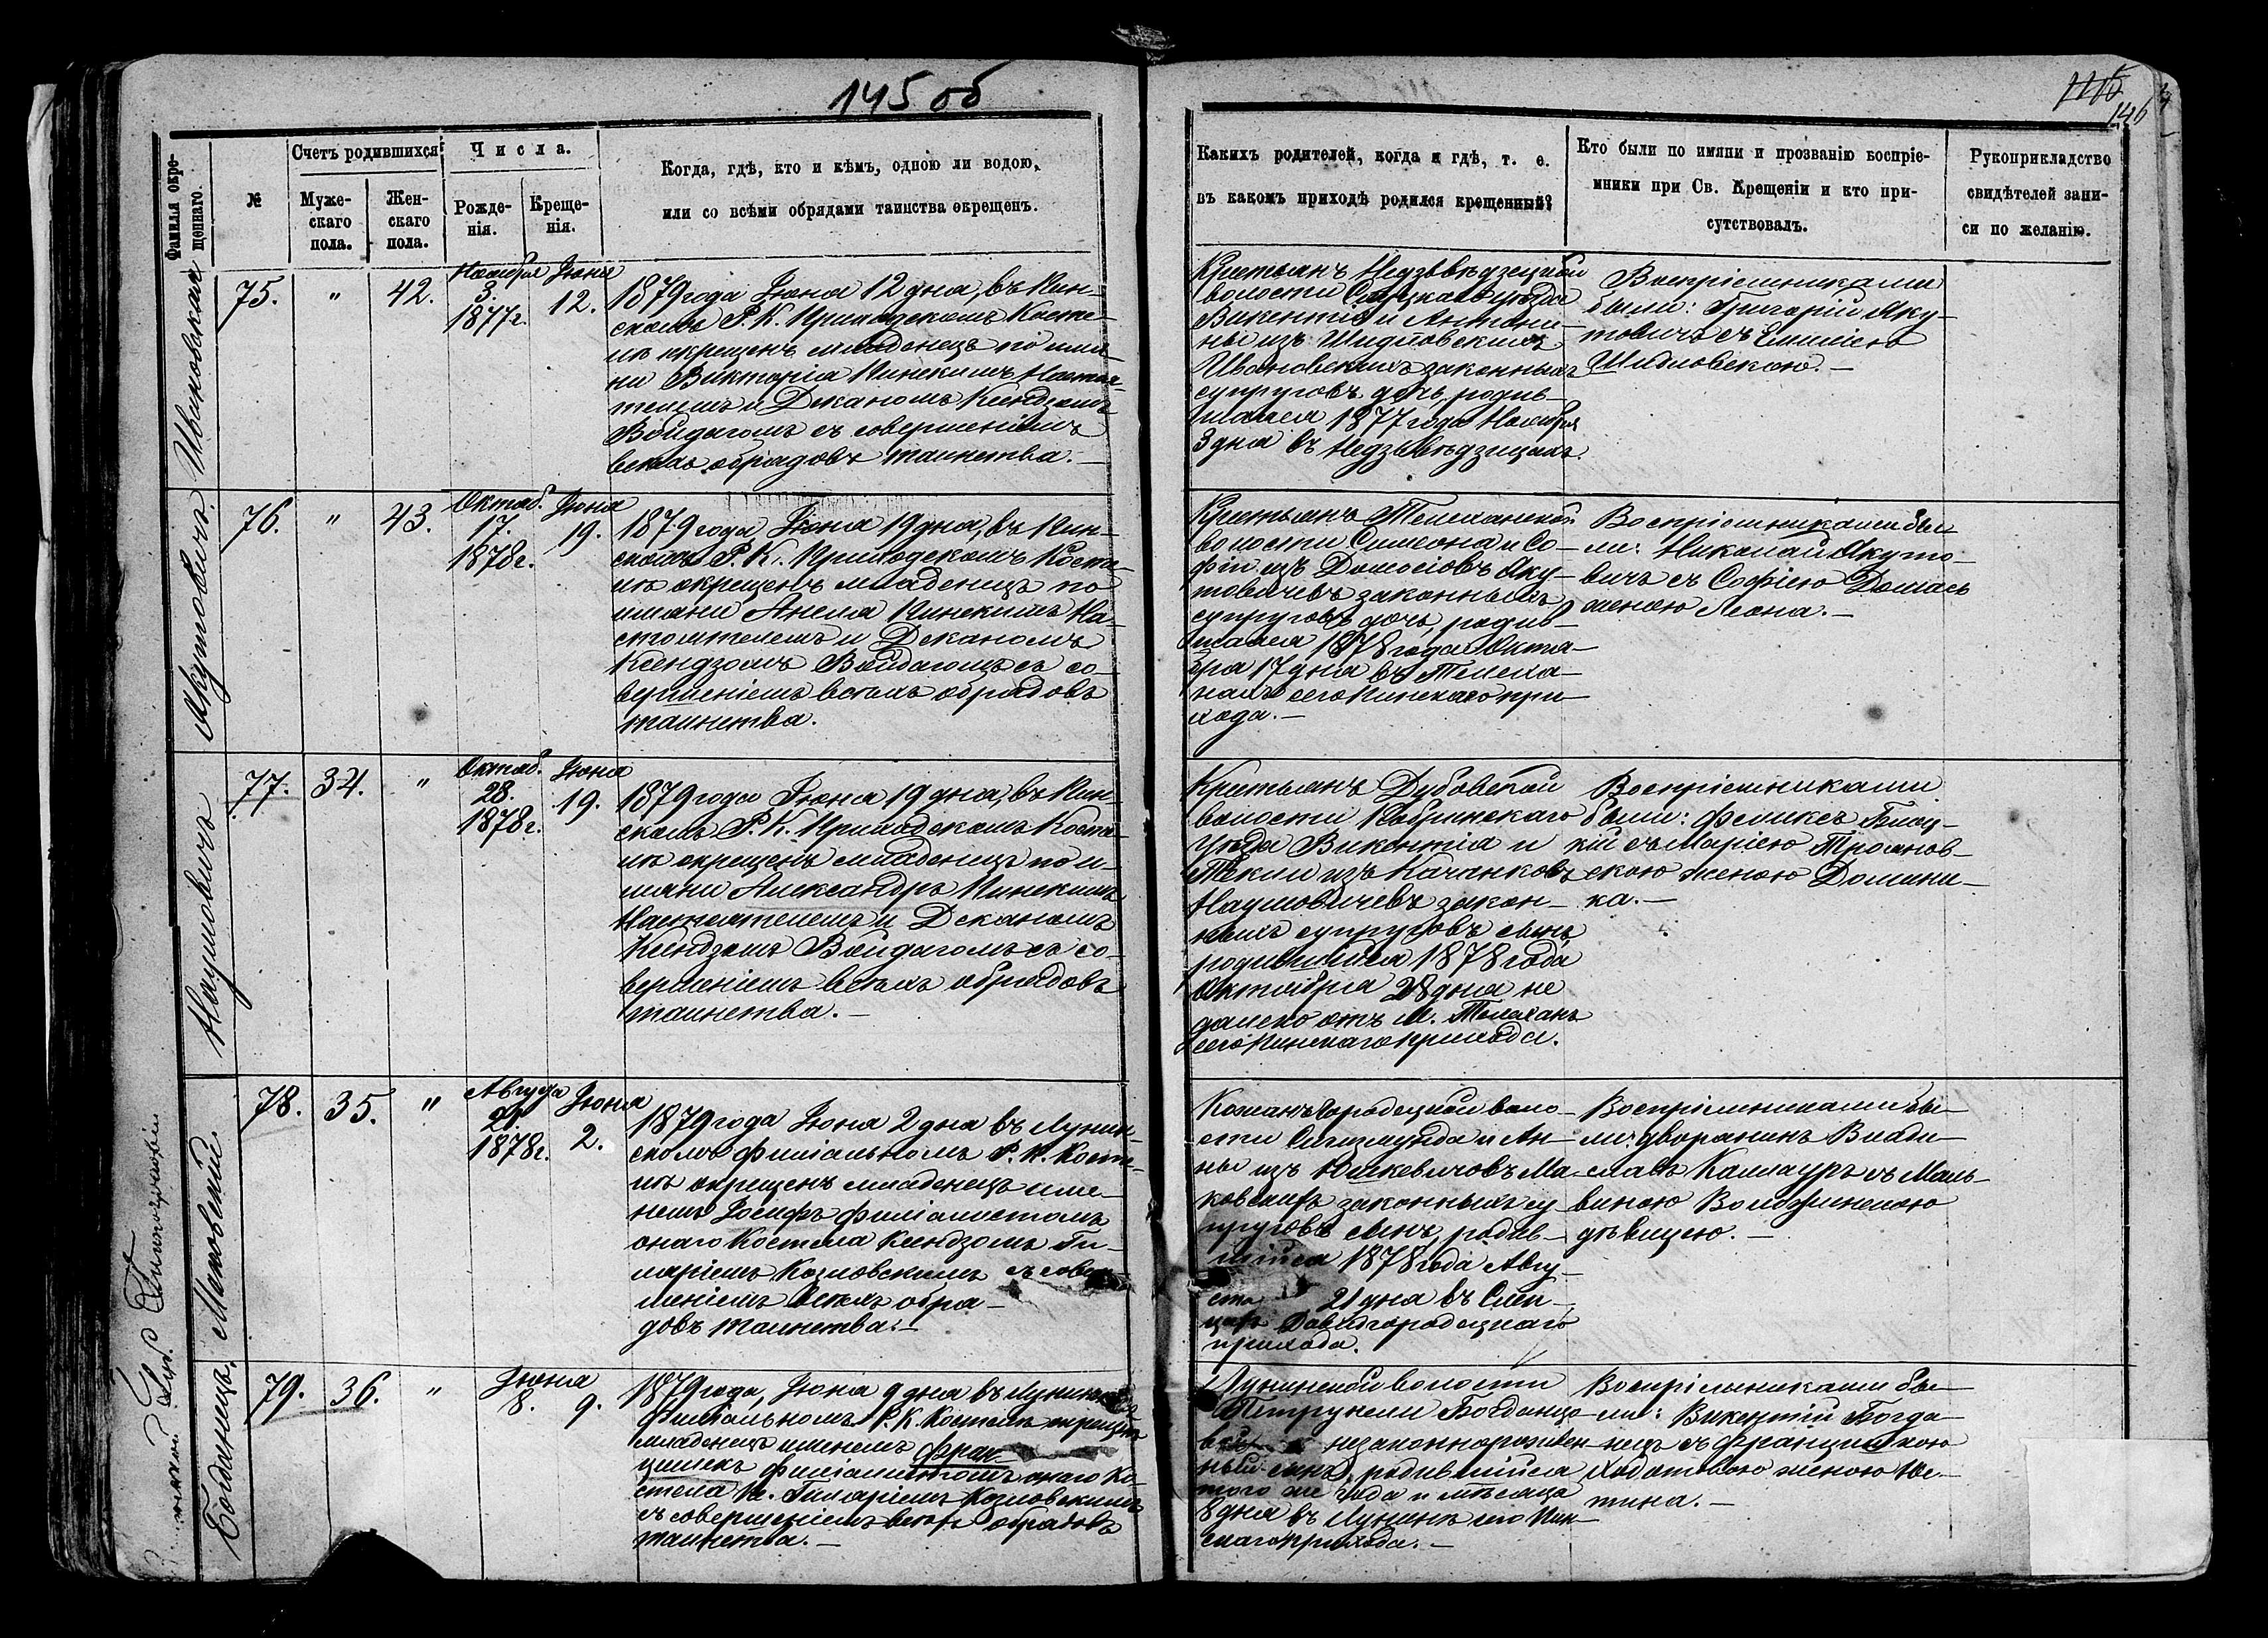 145 об
1115
146
Фамилія окрещеннаго.
№
Счетъ родившихся
Муже-
скаго
пола.
Жен-
скаго
пола.
Числа.
Рожде-
нія.
Креще-
нія.
Когда, гдѣ, кто и кѣмъ, одною ли водою,
или со всѣми обрядами таинства окрещенъ.
Какихъ родителей, когда и гдѣ, т. е.
въ какомъ приходѣ родился крещенный?
Кто были по имяни и прозванію воспріе-
мники при Св. Крещеніи и кто при-
сутствовалъ.
Рукоприкладство
свидѣтелей запи-
си по желанію.
Ивановская
75.
"
42.
Ноября
3.
1877г.
Іюня
12.
1879 года Іюня 12 дня, въ Пин-
скомъ Р. К. Приходскомъ Косте-
лѣ окрещенъ младенецъ по имя-
ни Викторія Пинскимъ Настоя-
телемъ и Деканомъ Ксендзомъ
Войдагомъ съ совершеніемъ
всѣхъ обрядовъ таинства.—
Крестьянъ Недзвѣдзецкой
волости Слуцкаго уѣзда
Викентія и Антони-
ны изъ Шидловскихъ
Ивановскихъ законныхъ
супруговъ дочь, родив-
шаяся 1877 года Ноября
3 дня въ Недзвѣдзицахъ.
Воспріемниками
были: Григорій Яку-
товичъ съ Емиліею
Шидловскою.—
Якутовичъ.
76.
"
43.
Октяб.
17.
1878г.
Іюня
19.
1879 года, Іюня 19 дня, въ Пин-
скомъ Р. К. Приходскомъ Косте-
лѣ окрещенъ младенецъ по
имяни Анеля Пинскимъ На-
стоятелемъ и Деканомъ
Ксендзомъ Войдагомъ съ со-
вершеніемъ всѣхъ обрядовъ
таинства.
Крестьянъ Телеханской
волости Симеона и Со-
фіи изъ Домосіовъ Яку-
товичевъ законныхъ
супруговъ дочь, родив-
шаяся 1878 года Октя-
бря 17 дня въ Телеха-
нахъ сего Пинскаго при-
хода.—
Воспріемниками бы-
ли: Николай Якуто-
вичъ съ Софіею Домась
женою Леона.—
Наумовичъ
77.
34.
"
Октяб.
28.
1878г.
Іюня
19.
1879 года Іюня 19 дня, въ Пин-
скомъ Р. К. Приходскомъ Косте-
лѣ окрещенъ младенецъ по и-
мяни Александръ Пинскимъ
Настоятелемъ и Деканомъ
Ксендзомъ Войдагомъ съ со-
вершеніемъ всѣхъ обрядовъ
таинства.—
Крестьянъ Дубовской
волости Кобринскаго
Уѣзда Викентія и
Текли изъ Качанковъ
Наумовичевъ закон-
ныхъ супруговъ сынъ,
родившійся 1878 года
Октября 28 дня не
далеко отъ м. Телеханъ
сего Пинскаго прихода.
Воспріемниками
были: Феликсъ Блиц-
кій съ Маріею Троянов-
скою женою Домини-
ка.—
Маковскій.
78.
35.
"
Августа
21.
1878г.
Іюня
2.
1879 года Іюня 2 дня въ Лунин-
скомъ филіальномъ Р. К. Косте-
лѣ окрещенъ младенецъ име-
немъ Іосифъ филіалистомъ
онаго Костела Ксендзомъ Ги-
ляріемъ Козловскимъ съ совер-
шеніемъ всѣхъ обря-
довъ таинства.—
Кожанъ-Городецкой воло-
сти Сигизмунда и Ан-
ны изъ Юшкевичовъ Ма-
ковскихъ законныхъ су-
пруговъ сынъ, родив-
шійся 1878 года Авгу-
ста 21 дня въ
Давидгородецкаго
прихода.
Воспріемниками бы-
ли: дворянинъ Влади-
славъ Каллауръ съ Маль-
виною
дѣвицею.—
Богданецъ.
79.
36.
"
Іюня
8.
9.
1879 года, Іюня 9 дня въ Лунинскомъ
филіальномъ Р. К. Костелѣ окрещенъ
младенецъ именемъ Фран-
цишекъ филіалистомъ онаго Ко-
стела К. Гиляріемъ Козловскимъ
съ совершеніемъ всѣхъ обрядовъ
таинства.—
Лунинской волости
Петрунели Богданцо-
вой незаконнорожден-
ный сынъ, родившійся
того же года и мѣсяца
8 дня въ Лунинѣ сего Пин-
скаго прихода.—
Воспріемниками бы-
ли: Викентій Богда-
нецъ съ Францишкою
женою Юс-
тина.—